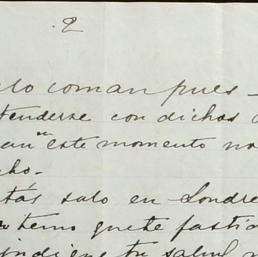 2
lo coman pues -
tenderse con dichos
en este momento no
cho.
tás solo en Londre
temo que te fasti
indique tu salud